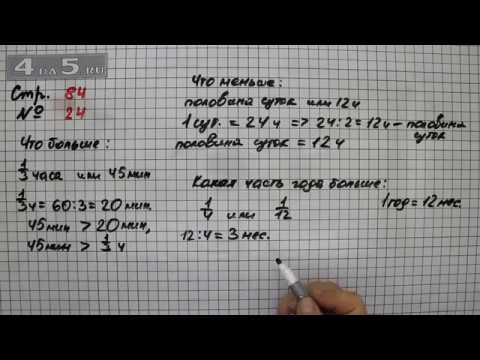 4на5.ru
Стр. 84
№ 24
Что больше:
1/3 часа или 45 мин
1/3 ч = 60:3 = 20 мин.
45 мин > 20 мин,
45 мин > 1/3 ч
Что меньше:
половина суток или 12 ч
1 сут. = 24 ч => 24:2 = 12 ч – половина
суток
половина суток = 12 ч
Какая часть года больше:
1/4 или 1/12
1 год = 12 мес.
12:4 = 3 мес.